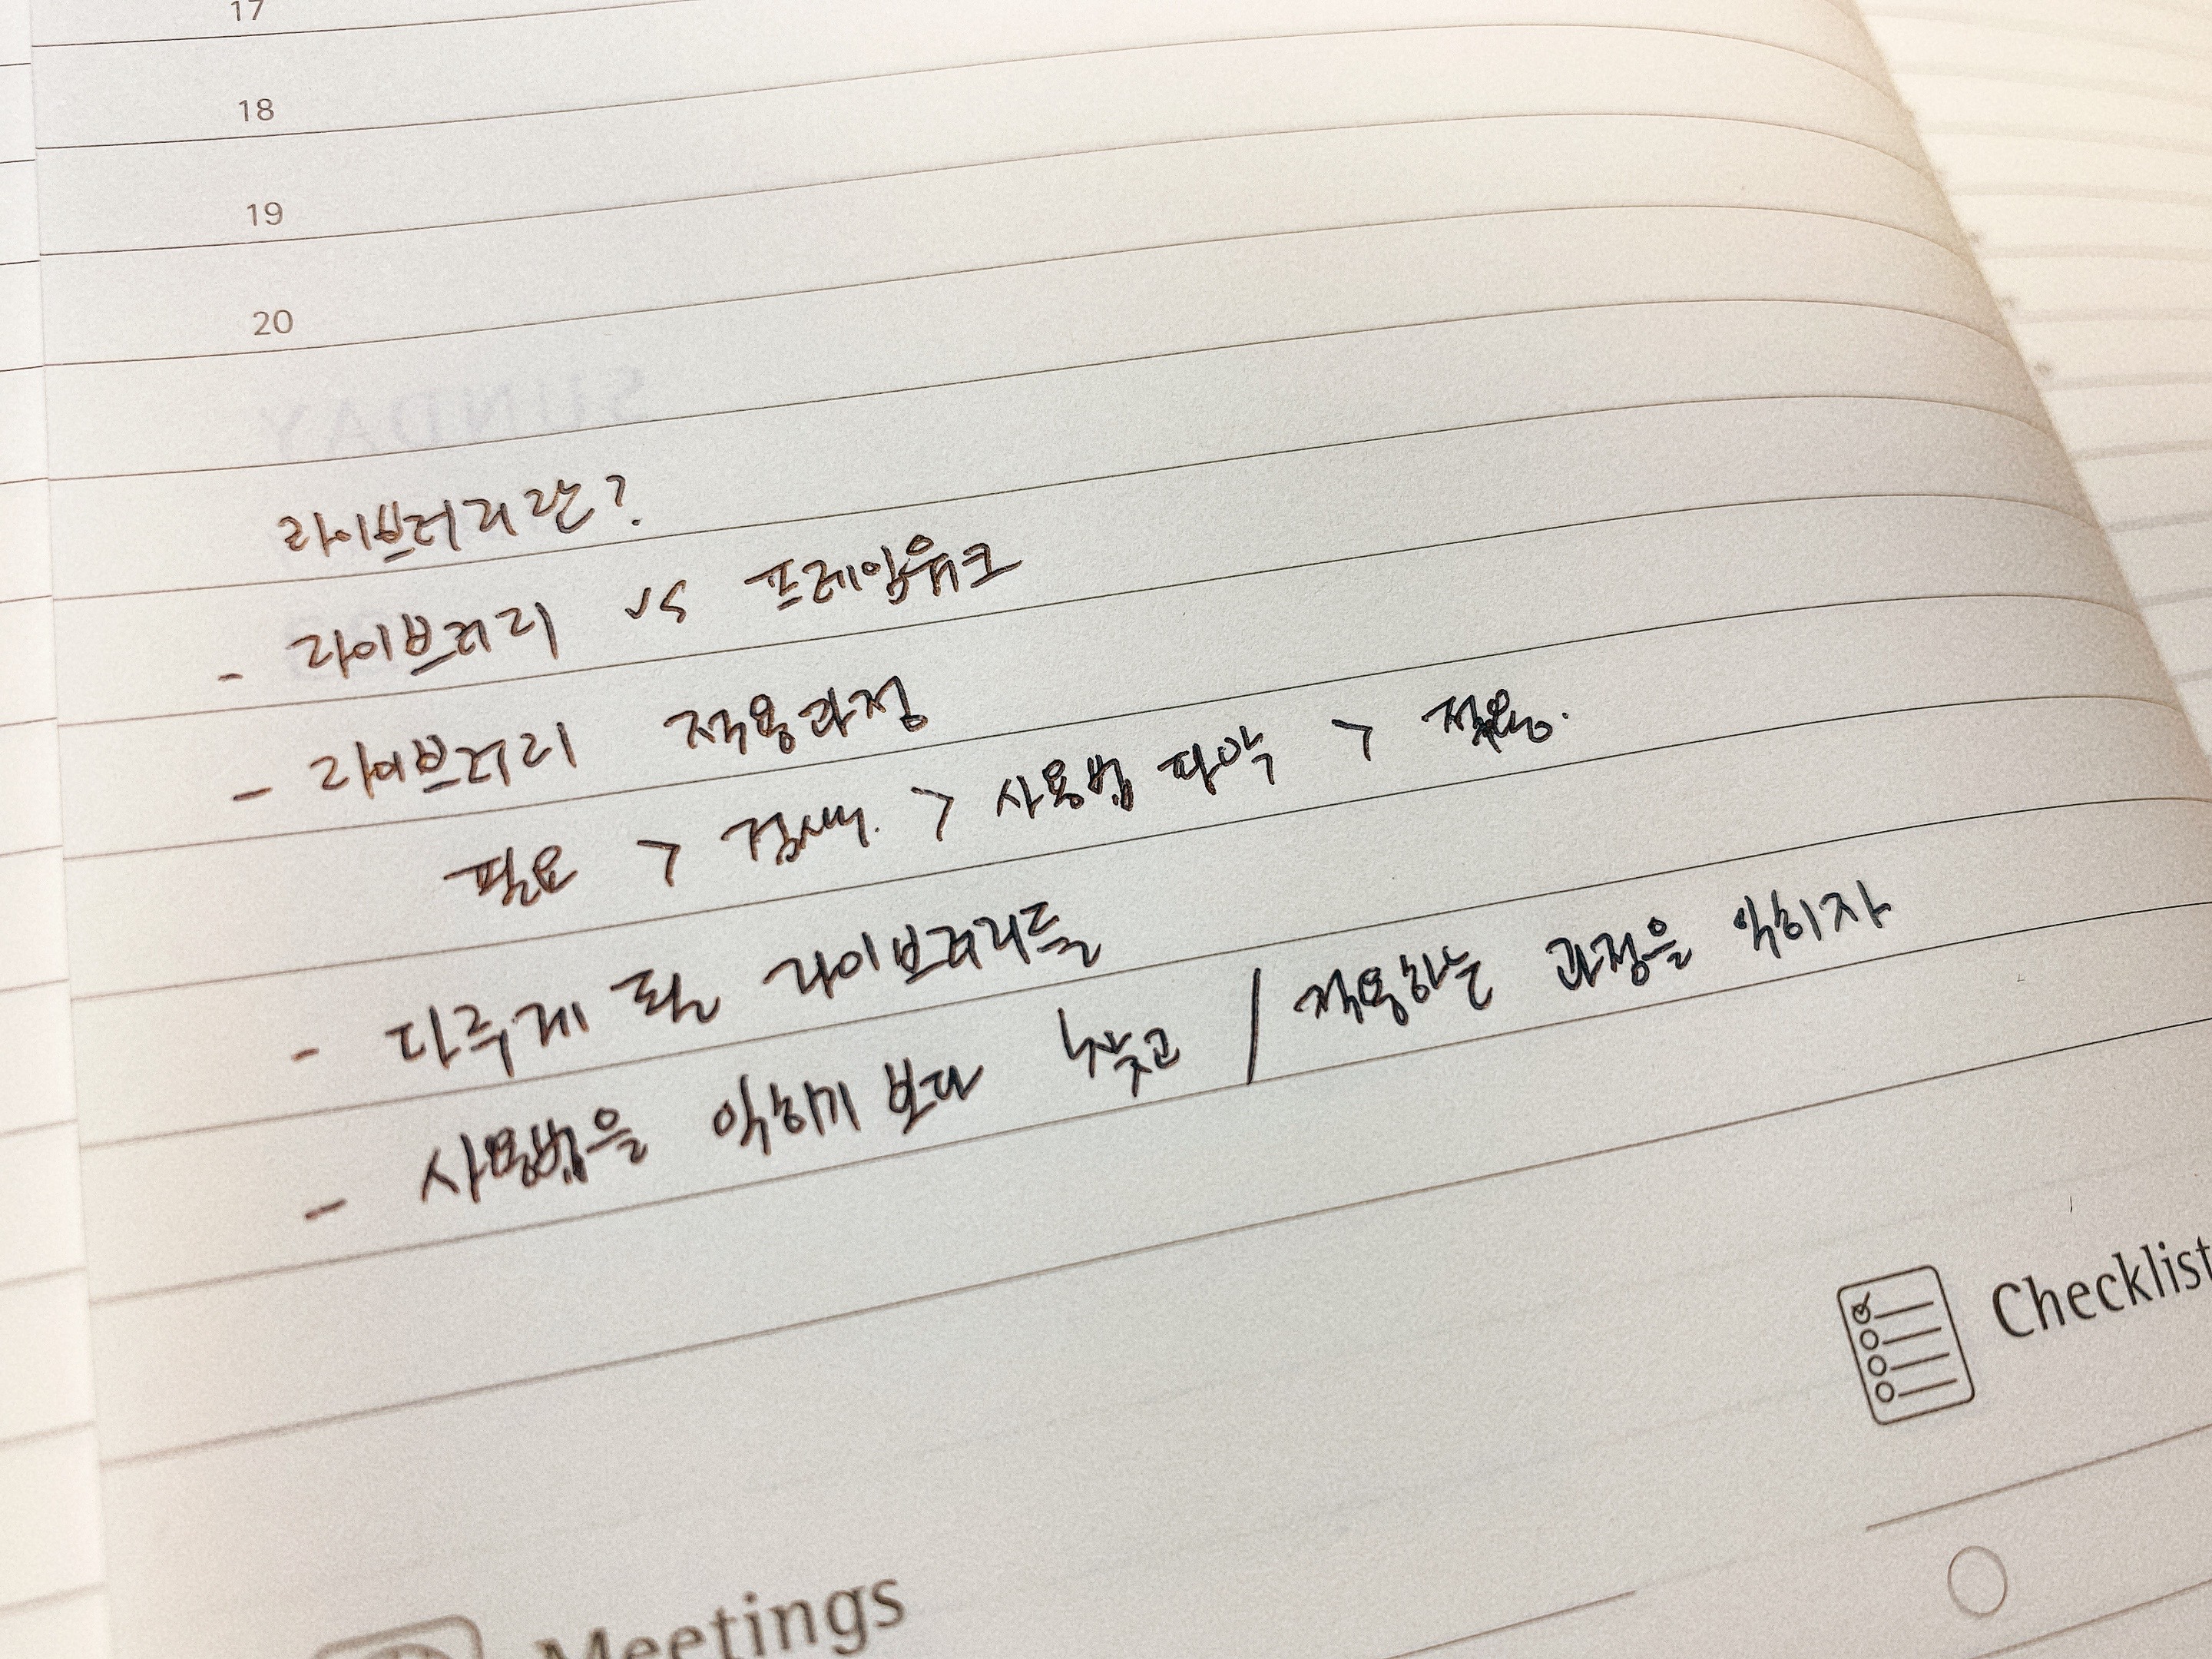 17
18
19
20
라이브러리란?
- 라이브러리 vs 프레임워크
- 라이브러리 적용과정
필요 > 검색. > 사용법 파악 > 적용.
- 다루게 될 라이브러리들
- 사용법을 익히기 보다 찾고 / 적용하는 과정을 익히자
Checklist
Meetings